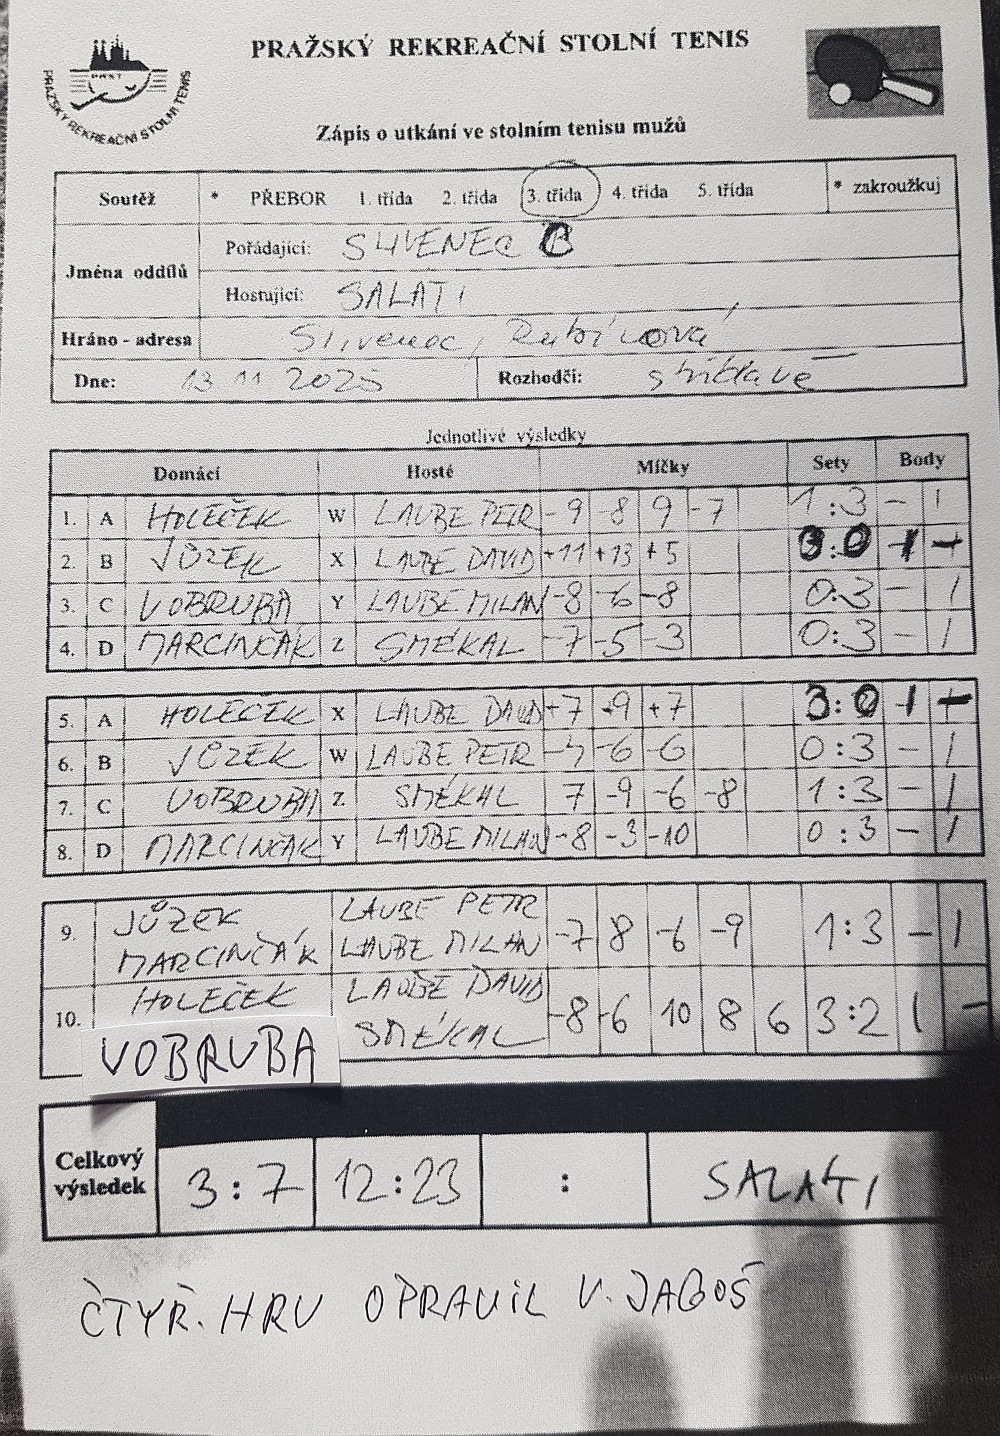 PRAŽSKÝ REKREAČNÍ STOLNÍ TENIS
PRST
PRAŽSKÝ REKREAČNÍ STOLNÍ TENIS
Zápis o utkání ve stolním tenisu mužů
Soutěž * PŘEBOR 1. třída 2. třída 3. třída 4. třída 5. třída * zakroužkuj
Jména oddílů
Pořádající: SLIVENEC B
Hostující: SALATI
Hráno - adresa Slivenec, Rubínová
Dne: 13 11 2025 Rozhodčí: střídavě
Jednotlivé výsledky
Domácí Hosté Míčky Sety Body
1. A HOLEČEK W LAUBE PETR -9 -8 9 -7 1:3 - 1
2. B JŮZEK X LAUBE DAVID +11 +13 +5 3:0 1 -
3. C VOBRUBA Y LAUBE MILAN -8 -6 -8 0:3 - 1
4. D MARCINČÁK Z SMÉKAL -7 -5 -3 0:3 - 1
5. A HOLEČEK X LAUBE DAVID +7 +9 +7 3:0 1 -
6. B JŮZEK W LAUBE PETR -6 -6 0:3 - 1
7. C VOBRUBA Z SMÉKAL 7 -9 -6 -8 1:3 - 1
8. D MARCINČÁK Y LAUBE MILAN -8 -3 -10 0:3 - 1
9. JŮZEK LAUBE PETR
MARCINČÁK LAUBE MILAN -7 8 -6 -9 1:3 - 1
10. HOLEČEK LAUBE DAVID
VOBRUBA SMÉKAL -8 -6 10 8 6 3:2 1 -
Celkový výsledek 3:7 12:23 : SALATI
ČTYŘ. HRU OPRAVIL V. JAGOŠ